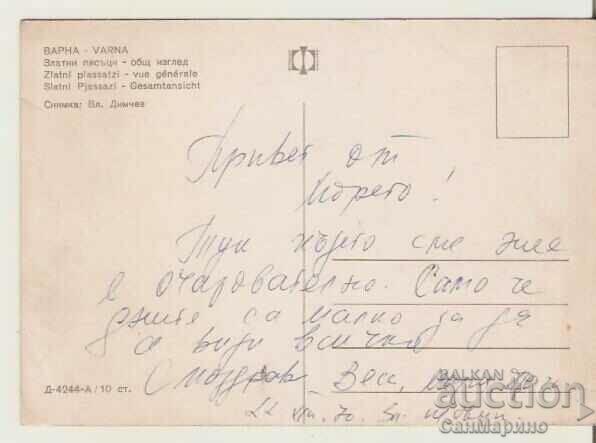 ВАРНА - VARNA
Златни пясъци - общ изглед
Zlatni piassatzi - vue générale
Slatni Pjassazi - Gesamtansicht
Снимка: Вл. Димчев
Привет от
Морето!
Тук където сме ние
е очарователно. Само че
дните са малко за да
се види всичко
С поздрав Вели,
Д-4244-А / 10 ст.
22
70
BALKAN
auction
СанМарино